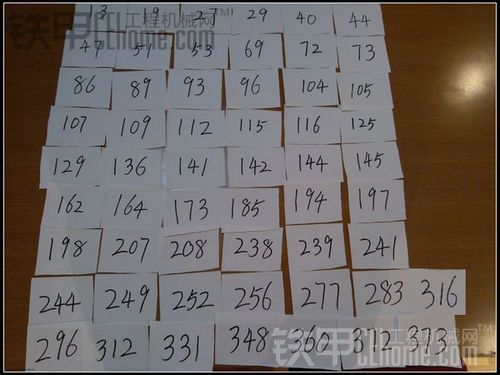 13 19 27 29 40 44
铁甲 工程机械网
cehome.com
47 51 53 69 72 73
86 89 93 96 104 105
107 109 112 115 116 125
129 136 141 142 144 145
162 164 173 185 194 197
198 207 208 238 239 241
244 249 252 256 277 283 316
296 312 331 348 360 373
铁甲 工程机械网
cehome.com